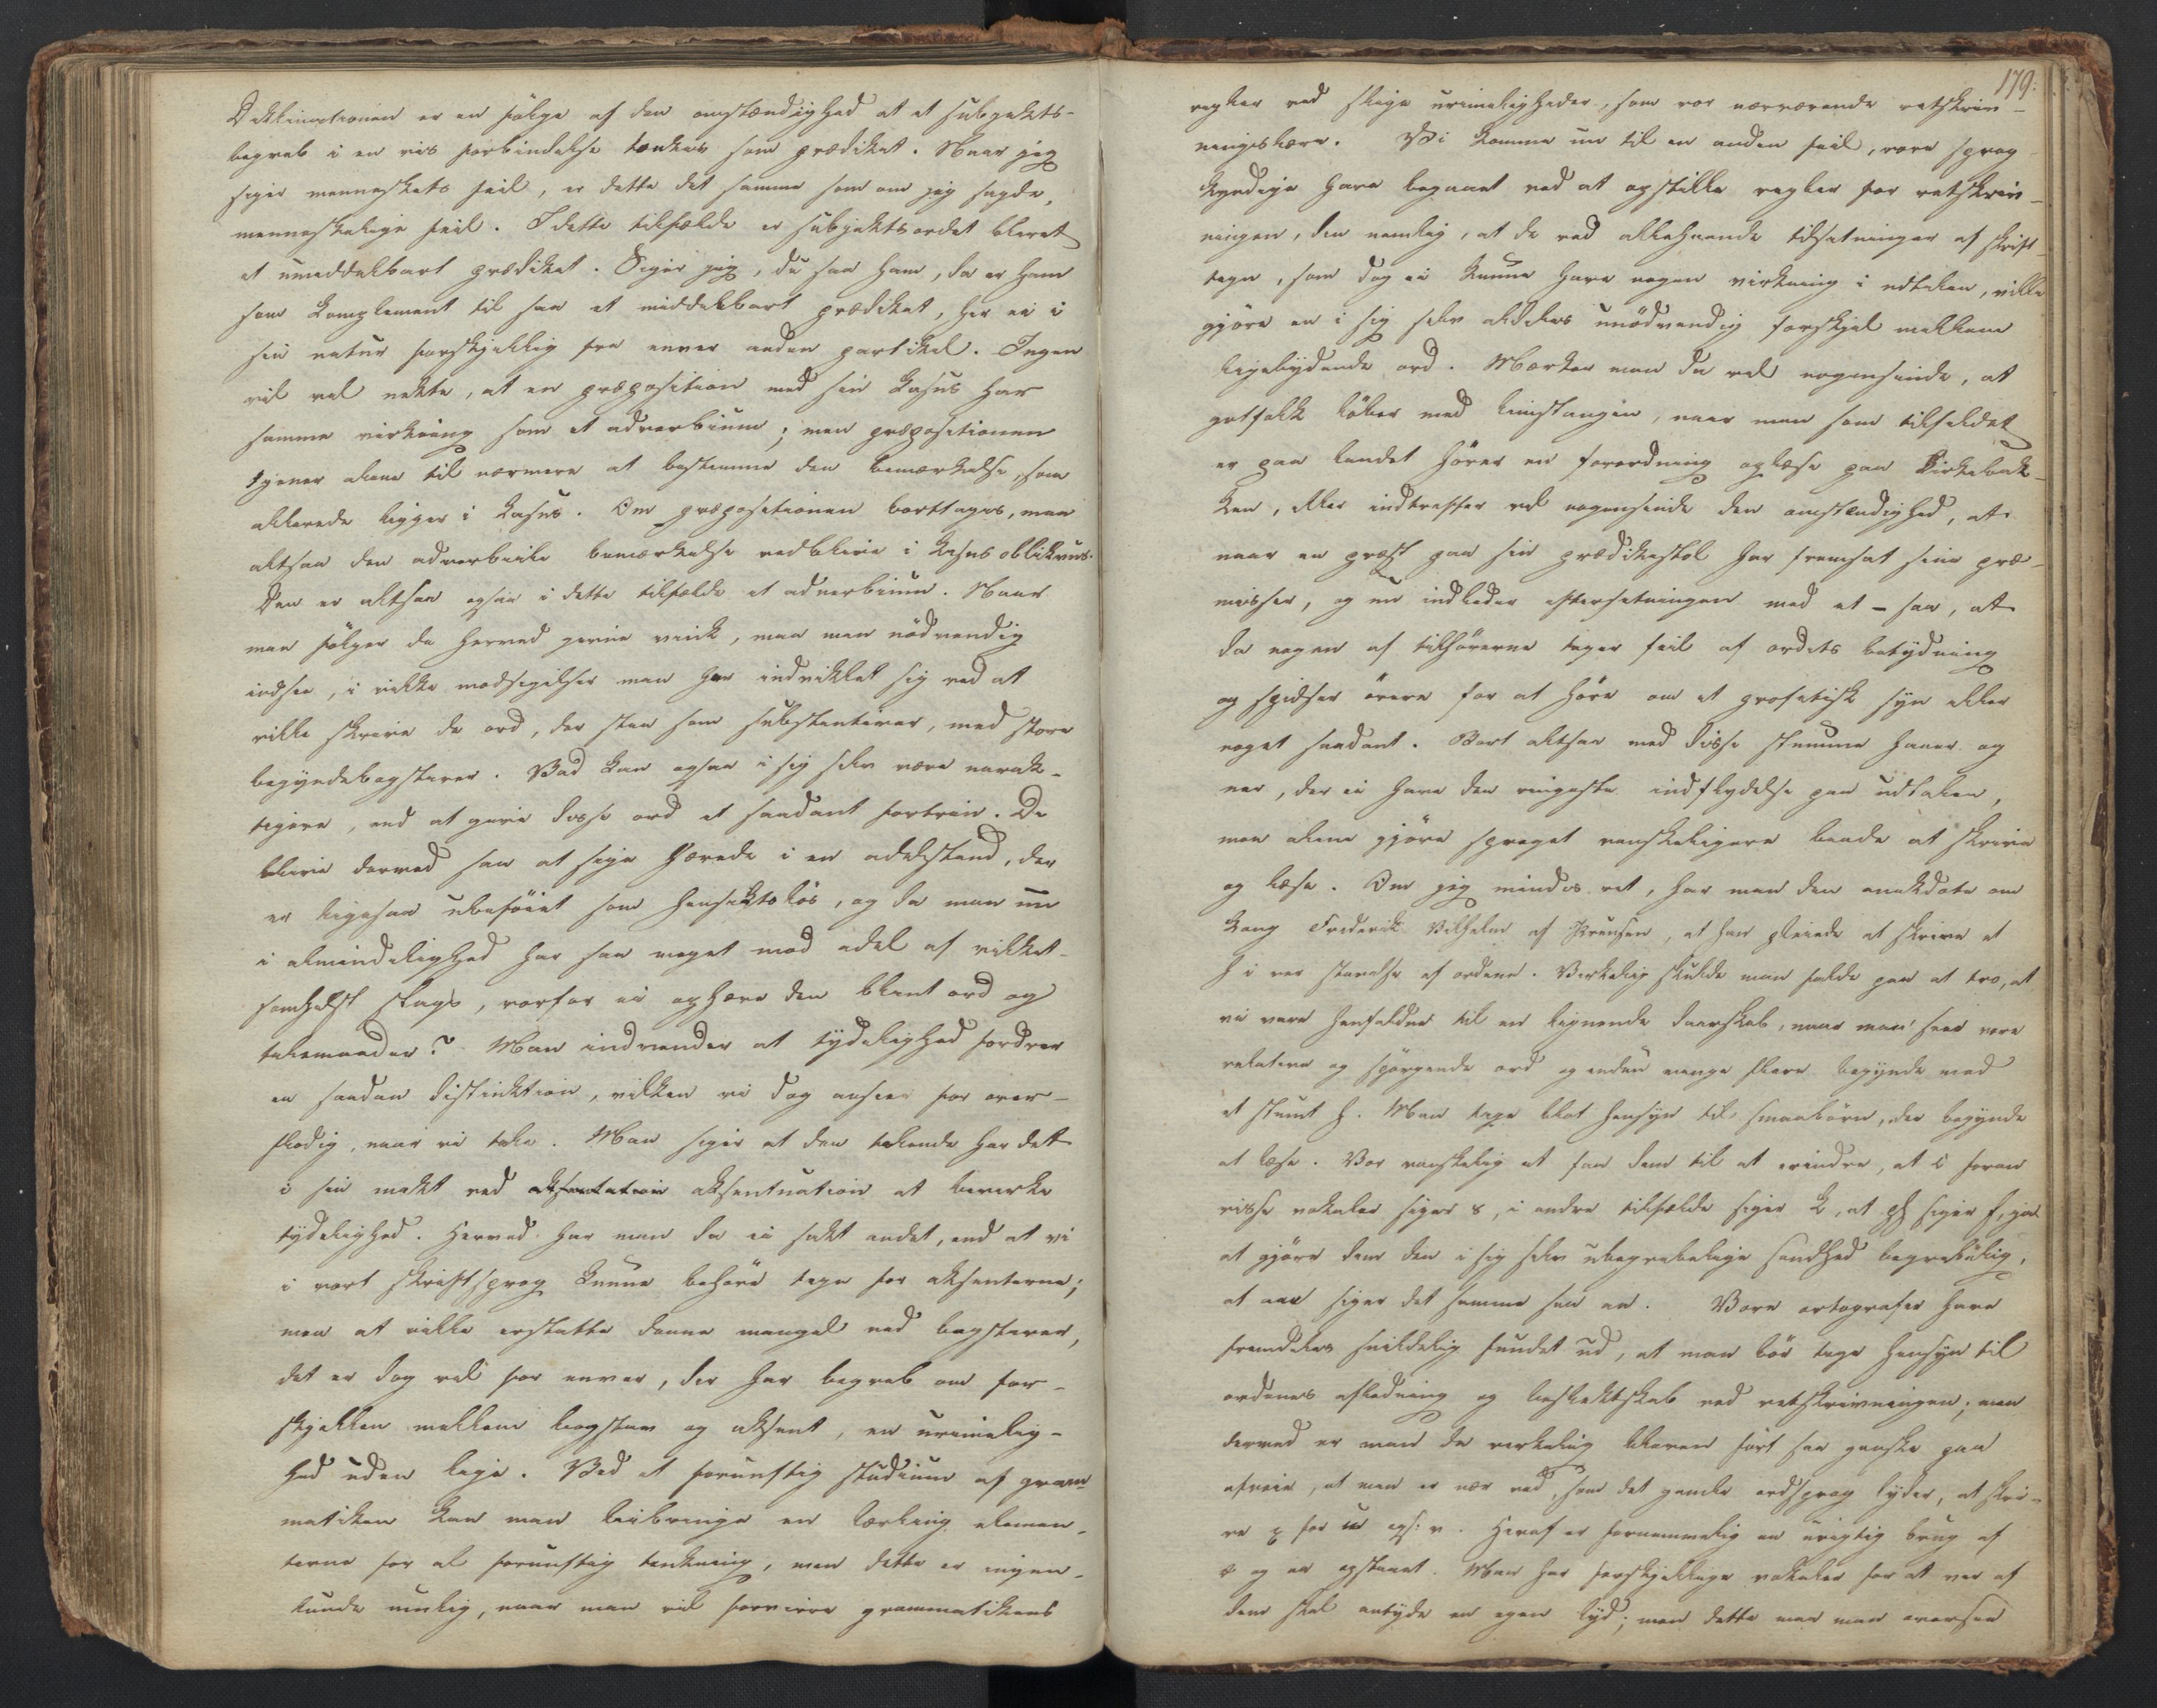 Deklinationen er en følge af den omstændighed at et subjekts-
begreb i en vis forbindelse tænkes som prædikat. Naar jeg
siger menneskets feil, er dette det samme som om jeg sagde,
menneskelige feil. I dette tilfælde er subjektsordet blevet
et umiddelbart prædikat. Siger jeg, du saa ham, da er ham
som komplement til saa et middelbart prædikat, her ei i
sin natur forskjellig fra enver anden partikel. Ingen
vil vel nekte, at en præposition med sin kasus har
samme virkning som et adverbium; men præpositionen
tjener alene til nærmere at bestemme den bemærkelse, som
allerede ligger i kasus. Om præpositionen borttages, maa
altsaa den adverbiale bemærkelse vedblive i kasus oblikvus.
Den er altsaa ogsaa i dette tilfælde et adverbium. Naar
man følger de herved givne vink, maa man nødvendig
indsee, i vilke modsigelser man har indviklet sig ved at
ville skrive de ord, der staa som substantiver, med store
begyndelsogstaver. Vad kan ogsaa i sig selv være narak-
tigere, end at give disse ord et saadant fortrin. De
blive dermed saa at sige hævede i en adelstand, der
er ligesaa ubeføiet som hensiktsløs, og da man nu
i almindelighed har saa meget mod adel af vilket-
somhelst slags, vorfor ei ophæve den blant ord og
talemaader? Man indvender at tydelighed fordrer
en saadan distinktion, vilken vi dog ansee for over-
flødig, naar vi tale. Man siger at den talende har det
i sin makt ved aksentuation at bevirke
tydelighed. Herved har man da ei sakt andet, end at vi
i vort skriftsprog kunne behøve tegn for aksenterne;
men at ville erstatte denne mangel ved bogstaver,
det er dog vel for enver, der har begreb om for-
skjellen mellem bogstav og aksent, en urimelig-
hed uden lige. Ved et fornuftig studium af gram-
matiken kan man bibringe en lærling elemen-
terne for al fornuftig tenkning, men dette er ingen-
lunde mulig, naar man vil forvirre grammatikens
179.
regler ved slige urimeligheder, som vor nærværende retskriv-
ningslære. Vi komme nu til en anden feil, vore sprog-
kyndige have begaaet ved at opstille regler for retskriv-
ningen, den nemlig, at de ved allehaande tilsetninger af skrift-
tegn, som dog ei kunne have nogen virkning i udtalen, ville
gjøre en i sig selv aldeles unødvendig forskjel mellem
ligelydende ord. Mærker man da vel nogensinde, at
gotfolk løber med limstangen, naar man som tilfeldet
er paa landet hører en forordning oplæse paa kirkebak-
ken, eller indtreffer vel nogensinde den omstændighed, at
naar en præst paa sin prædikestol har fremsat sine præ-
misser, og nu indleder eftersetningen med et – saa, at
da nogen af tilhørerne tager feil af ordets betydning
og spidser øren for at høre om et profetisk syn eller
noget saadant. Bort altsaa med disse stumme haner og
, der ei have den ringeste indflydelse paa udtalen,
men alene gjøre sproget vanskeligere baade at skrive
og læse. Om jeg mindes ret, har man den anekdote om
kong Frederik Vilhelm af Preusen, at han pleiede at skrive et
h i ver stavelse af ordene. Virkelig skulde man falde paa at tro, at
vi vare henfaldne til en lignende daarskab, naar man seer vore
relative og spørgende ord og endnu mange flere begynde med
et stumt h. Man tage blot hensyn til smaabørn, der begynde
at læse. Vor vanskelig at faa dem til at erindre, at c foran
visse vokaler siger s, i andre tilfælde siger k, at ph siger f,
at gjøre dem den i sig selv ubegribelige sandhed begribelig,
at siger det samme som en. Vore ortografer have
fremdeles snildelig fundet ud, at man bør tage hensyn til
ordenes afledning og beslektskab ved retskrivningen; men
derved er man da virkelig bleven ført saa ganske paa
afveie, at man er nær ved, som det gamle ordsprog lyder, at skri-
ve x for u. Heraf er fornemmelig en urigtig brug af
opstaaet. Man har forskjellige vokaler for at ver af
dem skal antyde en egen lyd; men dette maa man oversee